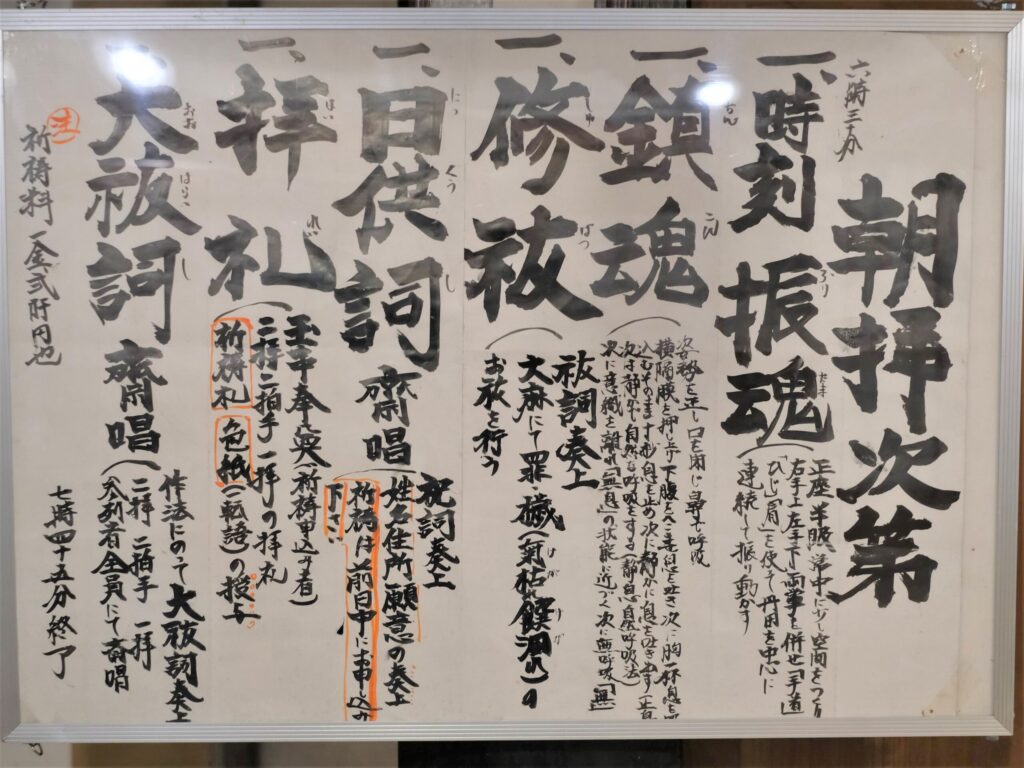 朝拝次第
六時三十分
一、時刻 振魂
ふり たま
正座 半眼 掌中に少し空間をつくり
右手上左手下 両掌を併せ「手首」
「ひじ」「肩」を使て丹田を中心に
連続して振り動かす
一、鎮魂
ちん こん
姿勢を正し口を閉じ鼻で呼吸
横隔膜を押し下げ下腹を
次に意識を離し「無息」の状態に近づく 次に無呼吸「無」
一、修祓
しゅ ばつ
祓詞奏上
大麻にて罪穢(気枯
けがれ
お祓を行う
一、日供詞 齋唱
にっ くう し
祝詞奏上
姓名住所願意の奏上
祈祷は前日中にお申し込み
下さい
一、拝礼
はい れい
玉串奉奠(祈祷申込み者)
二拝二拍手一拝の拝礼
祈祷札 色紙(転語)の授与
一、大祓詞 齋唱
おお はらえ し
作法にのって大祓詞奏上
二拝 二拍手 一拝
(参列者全員にて斎唱
七時四十五分終了
注 祈祷料 一金弐阡円也